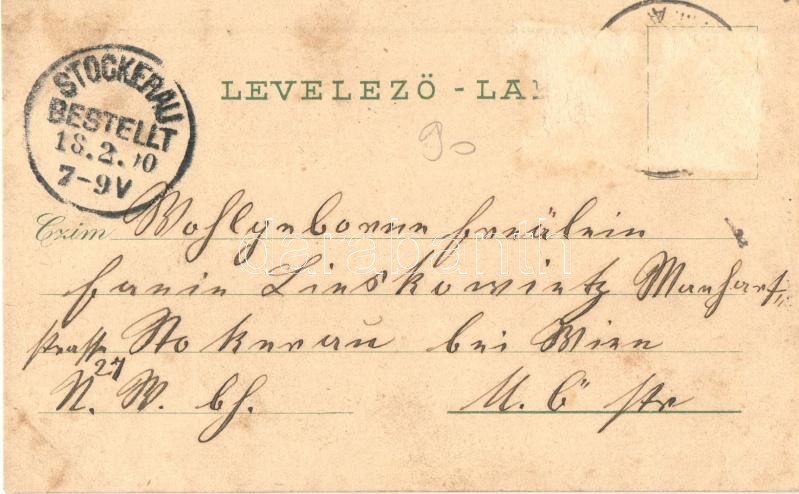 STOCKERAU
BESTELLT
18.2.00
7-9V
LEVELEZÖ - LA
90
Czim Wohlgeborne freülein
fanin Linskowintz Manhart
strasse Stokerau bei Wien
27
N. W. bh. U. Ö str
darabanth